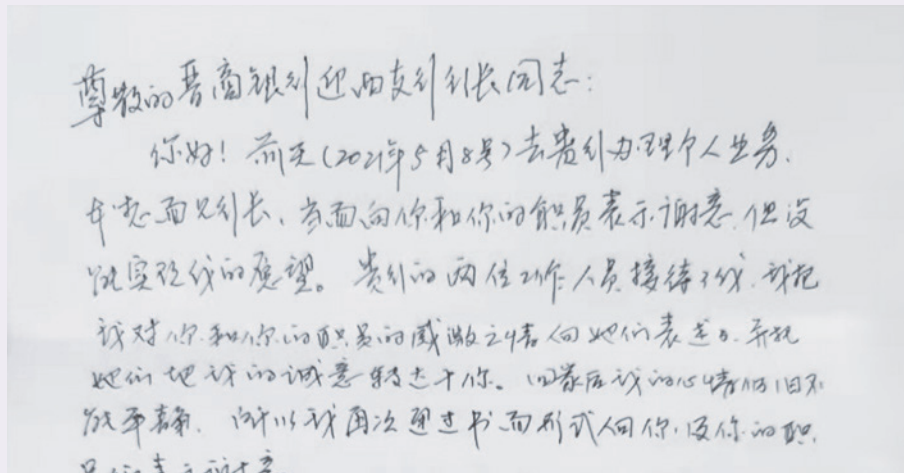 尊敬的晋商银行迎西支行行长同志：
你好！前天(2021年5月8号)去贵行办理个人业务、
并想面见行长、当面向你和你的职员表示谢意，但没
能实现我的愿望。贵行的两位工作人员接待了我，我把
我对你和你的职员的感激之情向她们表述了，并托
她们把我的诚意转达于你。回家后我的心情仍旧不
能平静，所以我再次通过书面形式向你，及你的职
员们表示谢意